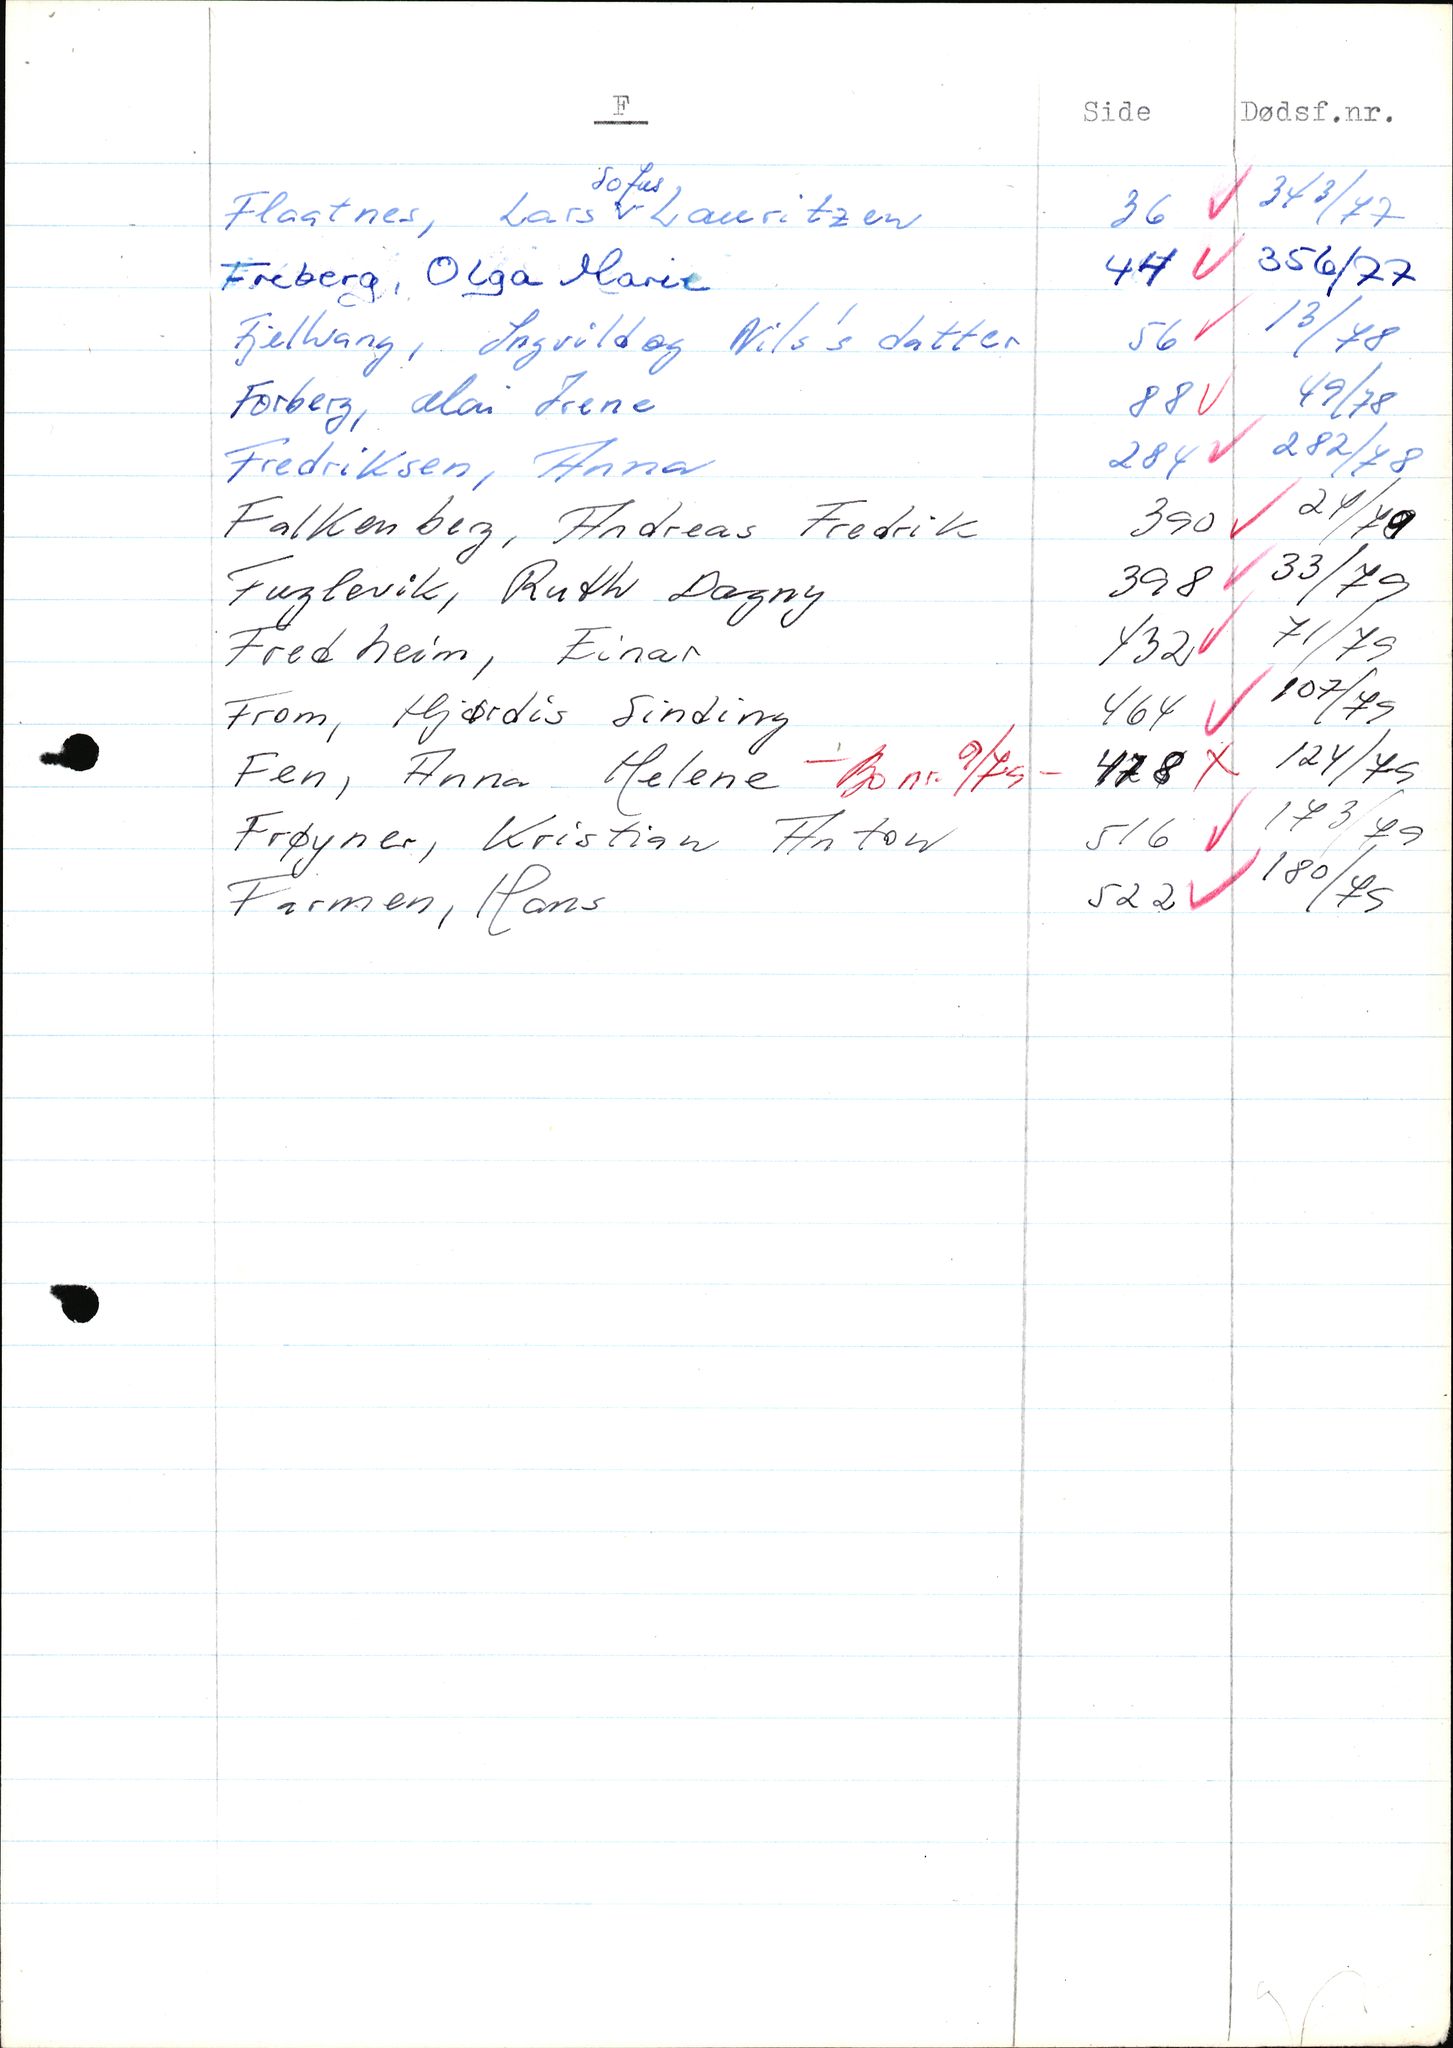 F Side Dødsf.nr.
Flaatnes, Lars Sofus Lauritzen 36 ✓ 343/77
Freberg, Olga Marie 44 ✓ 356/77
Fjellvang, Ingvild og Nils's datter 56 ✓ 13/78
Forberg, Mai Irene 88 ✓ 49/78
Fredriksen, Anna 284 ✓ 282/78
Falkenberg, Andreas Fredrik 390 ✓ 24/79
Fuglevik, Ruth Dagny 398 ✓ 33/79
Fredheim, Einar 432 ✓ 71/79
From, Hjørdis Sinding 464 ✓ 107/79
Fen, Anna Helene - Bo nr. 9/79 - 478 X 124/79
Frøyner, Kristian Anton 516 ✓ 173/79
Farmen, Hans 522 ✓ 180/79